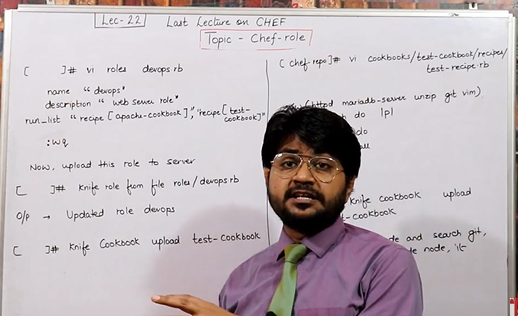 Lec-22 Last Lecture on CHEF
Topic - Chef-role
[ ]# vi roles devops.rb
name "devops"
description "web server role"
run_list "recipe[apache-cookbook]","recipe[test-cookbook]"
:wq
Now, upload this role to server
[ ]# Knife role from file roles/devops.rb
O/P → Updated role devops
[ ]# Knife Cookbook upload test-cookbook
[chef-repo]# vi cookbooks/test-cookbook/recipes/
test-recipe.rb
(httpd mariadb-server unzip git vim)
do |p|
do
knife cookbook upload
-cookbook
and search git,
node,